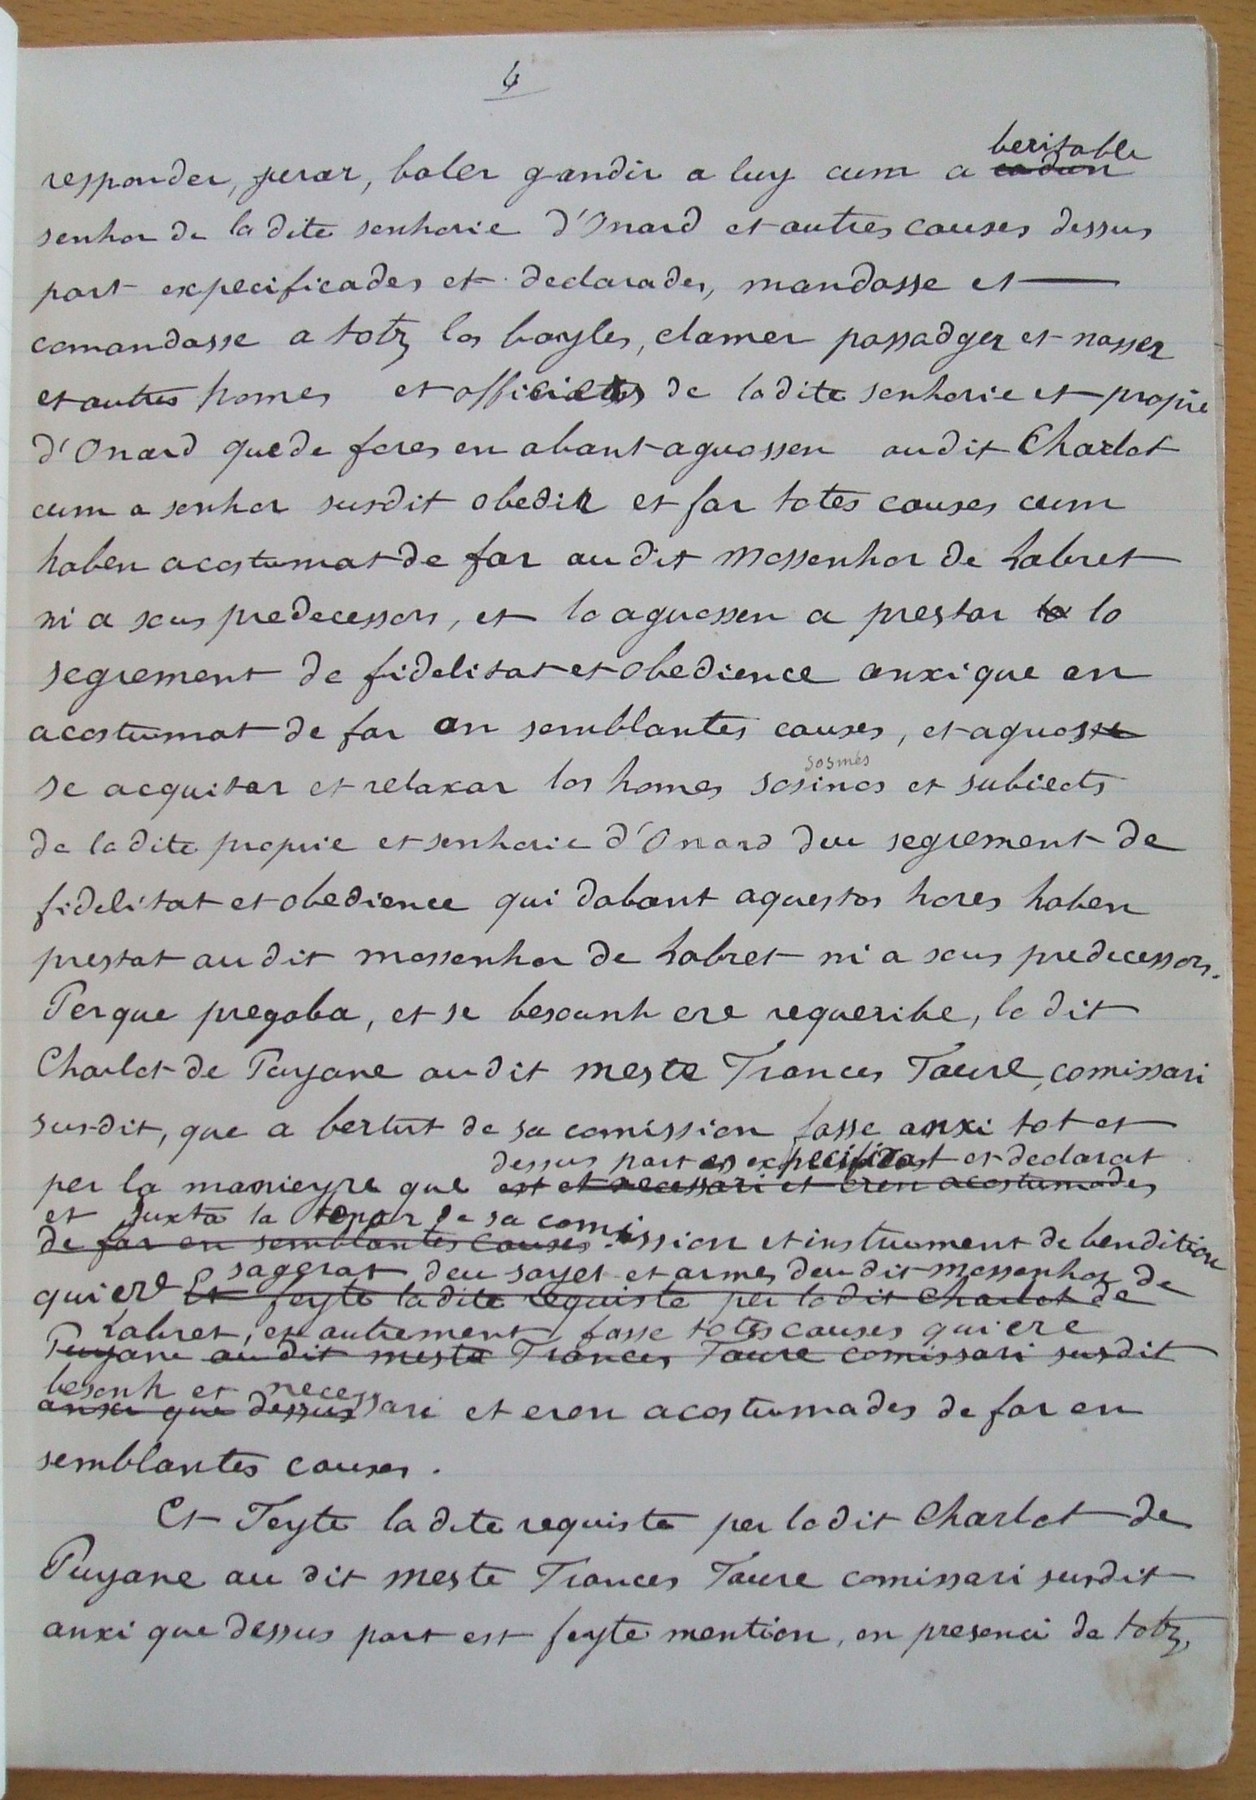 4
beritable
responder, jurar, baler gandir a luy cum a cadun
senhor de la dite senhorie d'Onard et autres causes dessus
part expecificades et declarades, mandasse et
comandasse a totz los bayles, clamer passadger et nasser
et autres homes et officiers de ladite senhorie et proprie
d'Onard que de fores en abant agossen audit Charlot
cum a senhor susdit obedir et far totes causes cum
haben acostumat de far au dit Mossenhor de Labret
ni a sous predecessors, et lo agossen a prestar lo
segrement de fidelitat et obedience anxi que en
acostumat de far en semblantes causes, et aguosse
sosmès
se acquitar et relaxar los homes sosmes et subiects
de ladite proprie et senhorie d'Onard deu segrement de
fidelitat et obedience qui dabant aquestes hores haben
prestat au dit mossenhor de Labret ni a sous predecessors.
Perque pregaba, et se besounh ere requeribe, lo dit
Charlot de Puyane au dit meste Frances Faure, comissari
susdit, que a bertut de sa comission fasse anxi tot et
dessus part es expecificat et declarat
per la manieyre que est et necessari et eren acostumades
et juxta la tenor de sa comission et instrument de bendition
de far en semblantes causes.
sagerat deu sayet et armes deu dit mossenhor de
qui ere Et feyte ladite requiste per lo dit Charlot de
Labret, et autrement fasse totes causes qui ere
Puyane au dit meste Frances Faure comissari susdit
besonh et necessari et eren acostumades de far en
anxi que dessus
semblantes causes.
Et Feyte la dite requiste per lo dit Charlot de
Puyane au dit meste Frances Faure comissari susdit
anxi que dessus part est feyte mention, en presenci de totz,